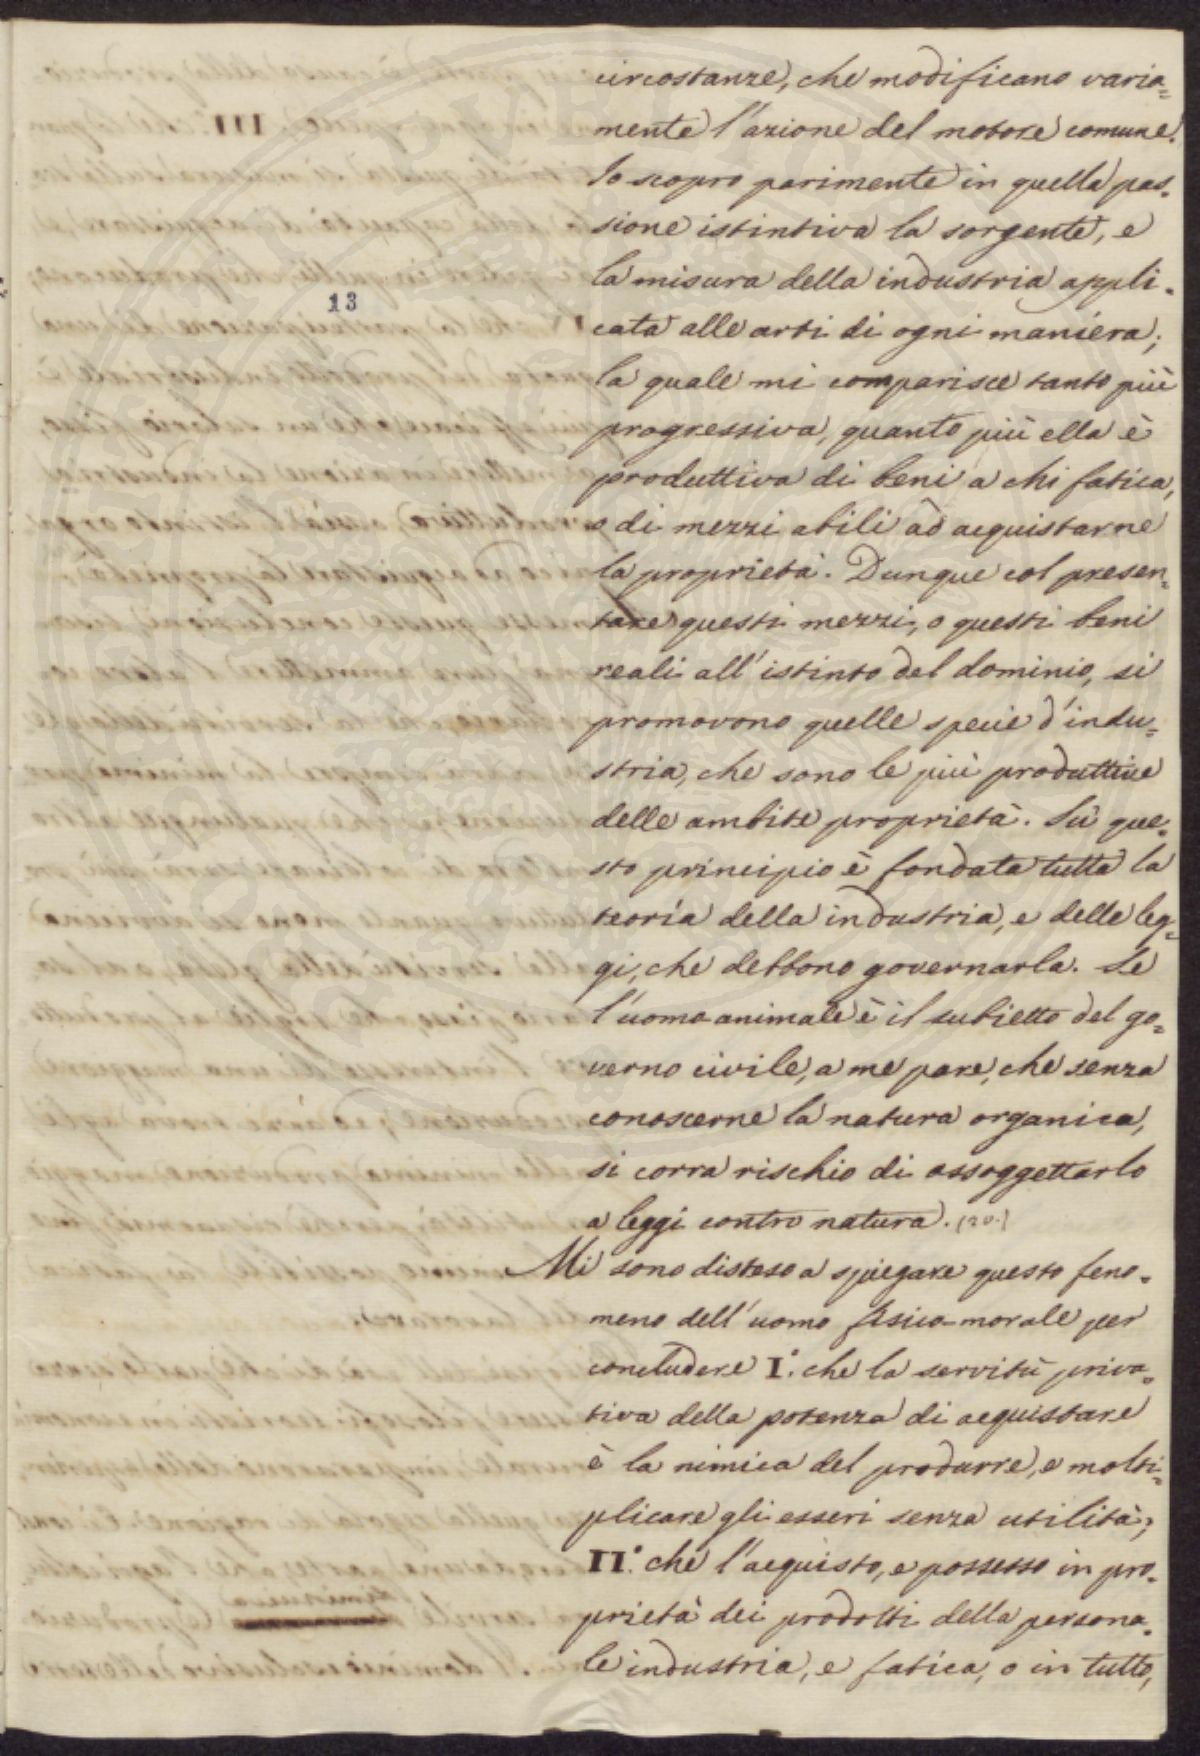 circostanze, che modificano varia=
mente l'azione del motore comune.
Io scopro parimente in quella pas=
sione istintiva la sorgente, e
la misura della industria appli=
13
cata alle arti di ogni maniera;
la quale mi comparisce tanto più
progressiva, quanto più ella è
produttiva di beni a chi fatica,
o di mezzi abili ad acquistarne
la proprietà. Dunque col presen=
tare questi mezzi, o questi beni
reali all'istinto del dominio, si
promovono quelle specie d'indu=
stria, che sono le più produttive
delle ambite proprietà. Sù que=
sto principio è fondata tutta la
teoria della industria, e delle leg=
gi, che debbono governarla. Se
l'uomo animale è il subietto del go=
verno civile, a me pare, che senza
conoscerne la natura organica,
si corra rischio di assoggettarlo
a leggi contro natura. (20.)
Mi sono disteso a spiegare questo feno=
meno dell'uomo fisico-morale per
concludere I.° che la servitù priva=
tiva della potenza di acquistare
è la nimica del produrre, e molti=
plicare gli esseri senza utilità;
II.° che l'acquisto, e possesso in pro=
prietà dei prodotti della persona=
le industria, e fatica, o in tutto,